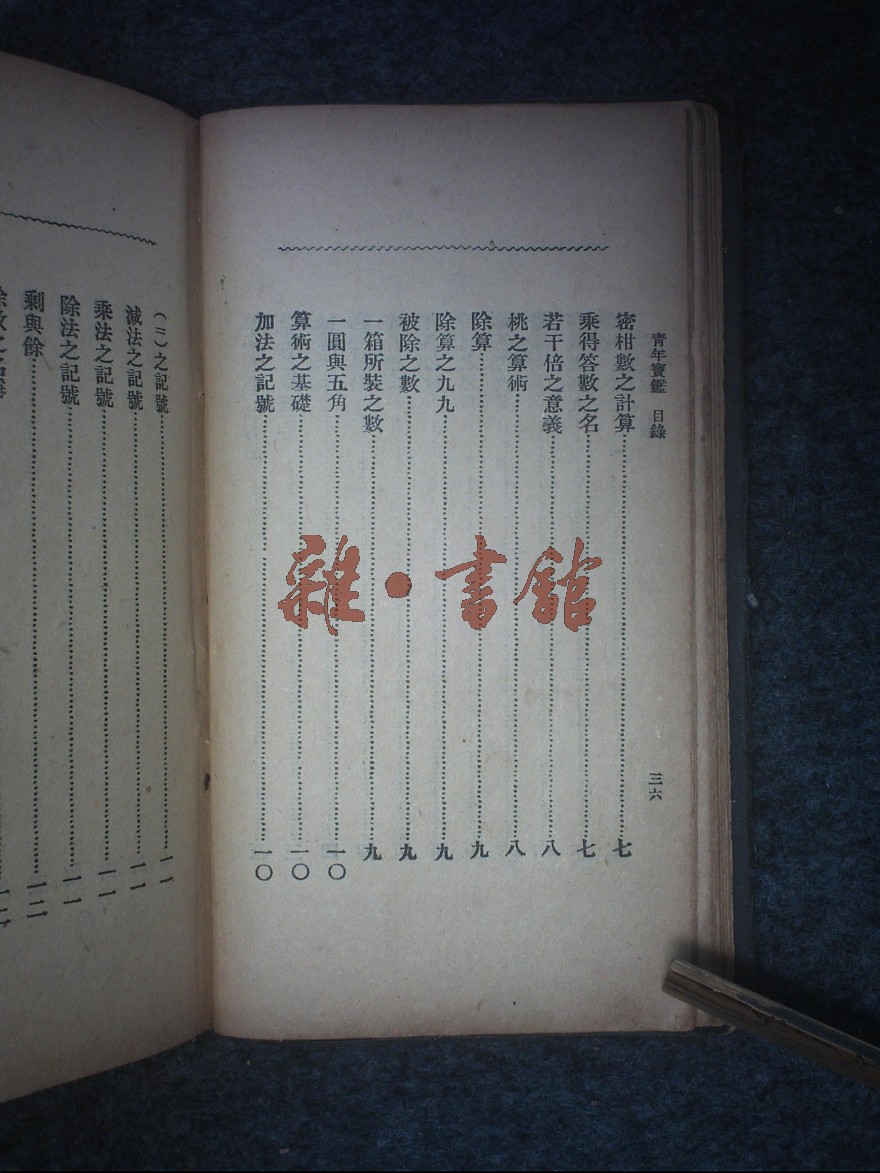 青年寶鑑 目錄 三六
密柑數之計算⋯⋯七
乘得答數之名⋯⋯七
若干倍之意義⋯⋯八
桃之算術⋯⋯八
除算⋯⋯九
除算之九九⋯⋯九
被除之數⋯⋯九
一箱所裝之數⋯⋯九
一圓與五角⋯⋯一〇
算術之基礎⋯⋯一〇
加法之記號⋯⋯一〇
雜·書館
(=)之記號⋯⋯一一
減法之記號⋯⋯一一
乘法之記號⋯⋯一一
除法之記號⋯⋯一一
剩與餘⋯⋯一二